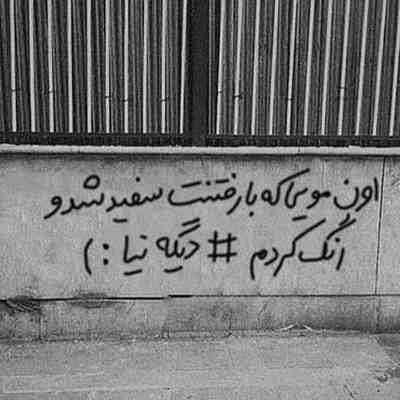 اون مویی که با رفتنت سفید شد و
رنگ کردم # دیگه نیا :)